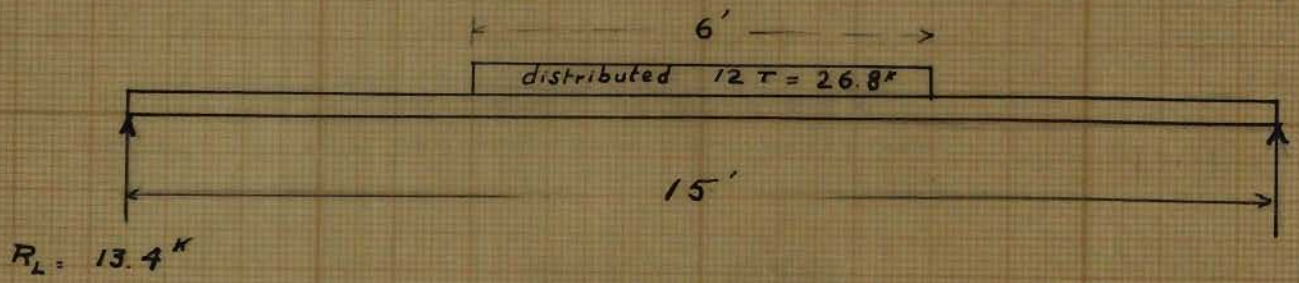 6'
distributed 12 T = 26.8ᴷ
15'
R_L = 13.4ᴷ